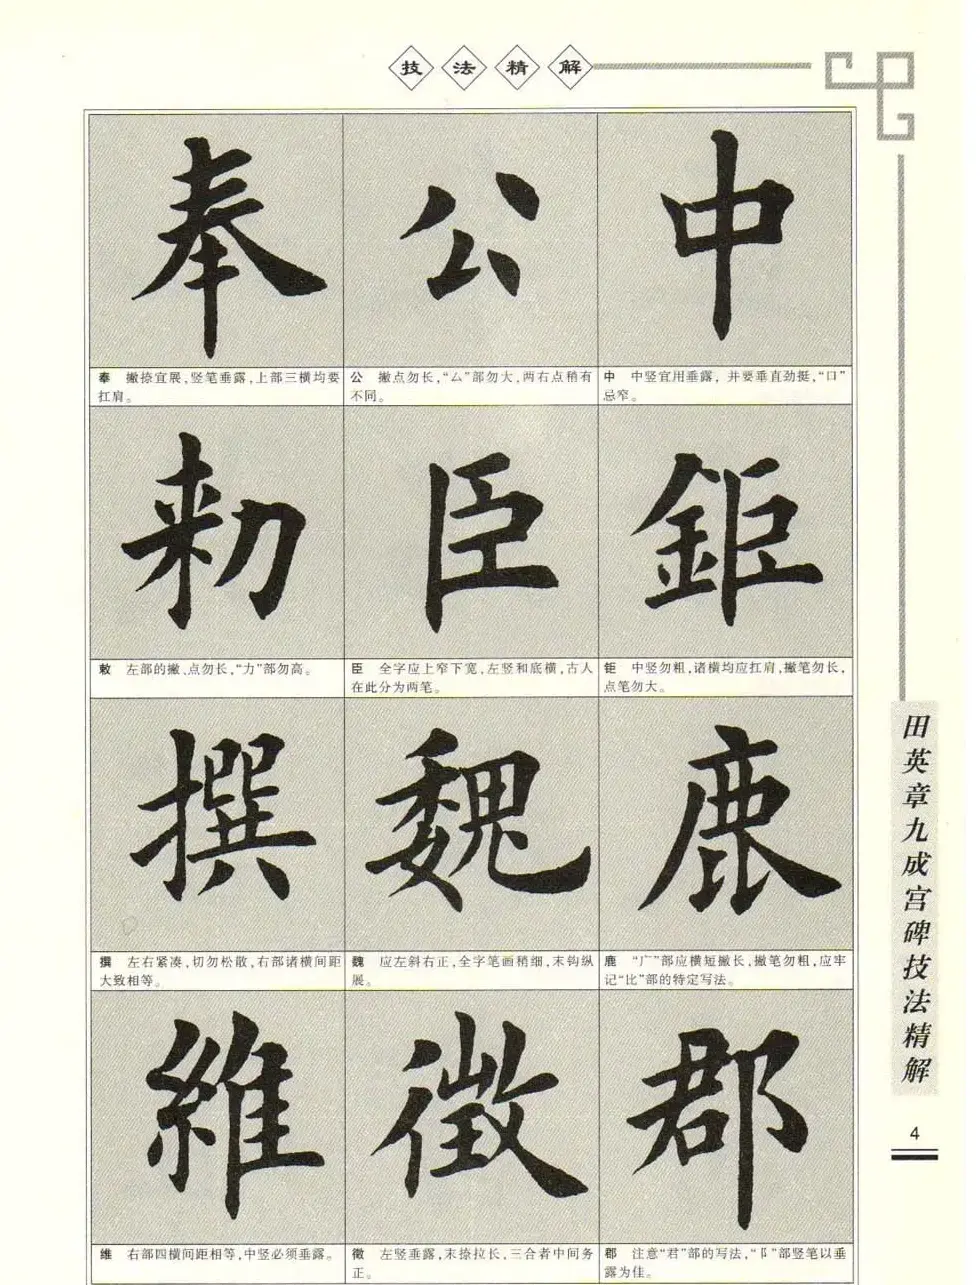 技法精解
奉 公 中
奉 撇捺宜展,竖笔垂露,上部三横均要
扛肩。
公 撇点勿长,“厶”部勿大,两右点稍有
不同。
中 中竖宜用垂露,并要垂直劲挺,“口”
忌窄。
勑 臣 鉅
敕 左部的撇、点勿长,“力”部勿高。
臣 全字应上窄下宽,左竖和底横,古人
在此分为两笔。
钜 中竖勿粗,诸横均应扛肩,撇笔勿长,
点笔勿大。
撰 魏 鹿
撰 左右紧凑,切勿松散,右部诸横间距
大致相等。
魏 应左斜右正,全字笔画稍细,末钩纵
展。
鹿 “广”部应横短撇长,撇笔勿粗,应牢
记“比”部的特定写法。
維 徵 郡
维 右部四横间距相等,中竖必须垂露。
徵 左竖垂露,末捺拉长,三合者中间务
正。
郡 注意“君”部的写法,“阝”部竖笔以垂
露为佳。
田英章九成宫碑技法精解
4